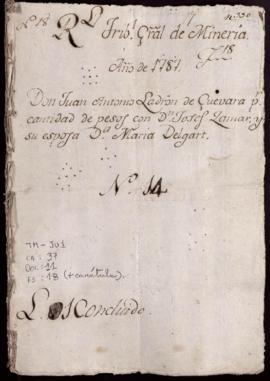 Nº 18 Rl Tribl Gral de Minería.
Año de 1787.
Don Juan Antonio Ladrón de Guevara pr.
cantidad de pesos con Dn Josef Lamar, y
su esposa Da Maria Delgart.
Nº 14
TM-JU1
CA: 37
DOC: 11
FS: 18 (+ carátula).
Concluido.